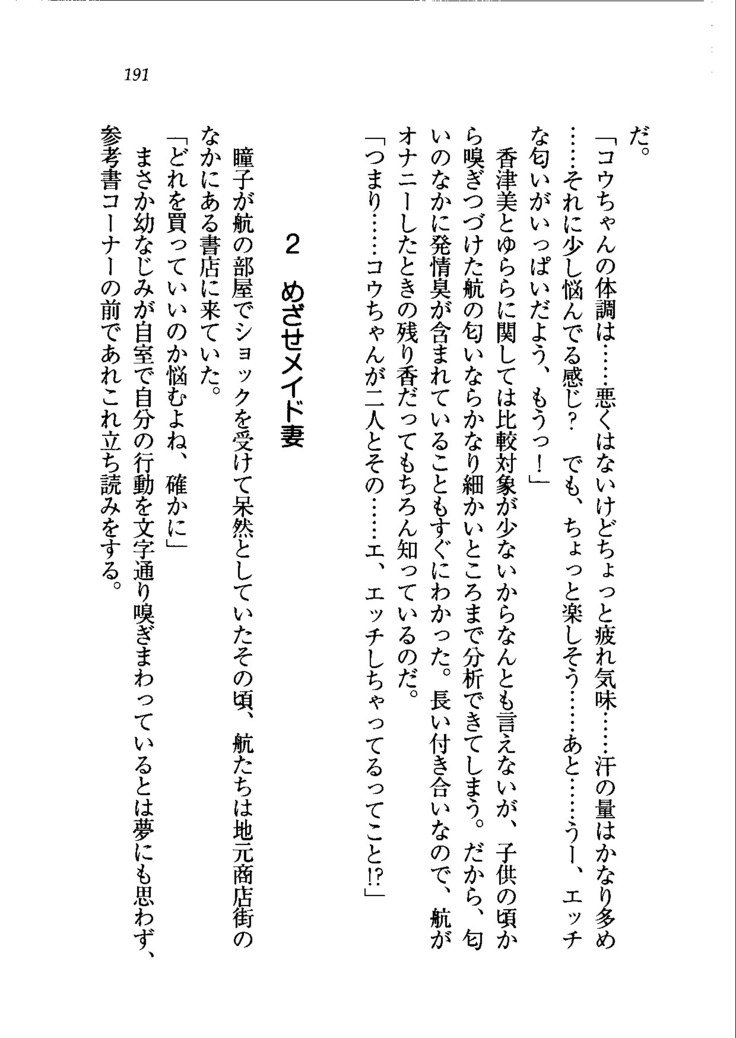 191
だ。
「コウちゃんの体調は……悪くはないけどちょっと疲れ気味……汗の量はかなり多め
……それに少し悩んでる感じ？　でも、ちょっと楽しそう……あと……うー、エッチ
な匂いがいっぱいだよう、もうっ！」
　香津美とゆららに関しては比較対象が少ないからなんとも言えないが、子供の頃か
ら嗅ぎつづけた航の匂いならかなり細かいところまで分析できてしまう。だから、匂
いのなかに発情臭が含まれていることもすぐにわかった。長い付き合いなので、航が
オナニーしたときの残り香だってもちろん知っているのだ。
「つまり……コウちゃんが二人とその……エ、エッチしちゃってるってこと!?」
2　めざせメイド妻
　瞳子が航の部屋でショックを受けて呆然としていたその頃、航たちは地元商店街の
なかにある書店に来ていた。
「どれを買っていいのか悩むよね、確かに」
　まさか幼なじみが自室で自分の行動を文字通り嗅ぎまわっているとは夢にも思わず、
参考書コーナーの前であれこれ立ち読みをする。